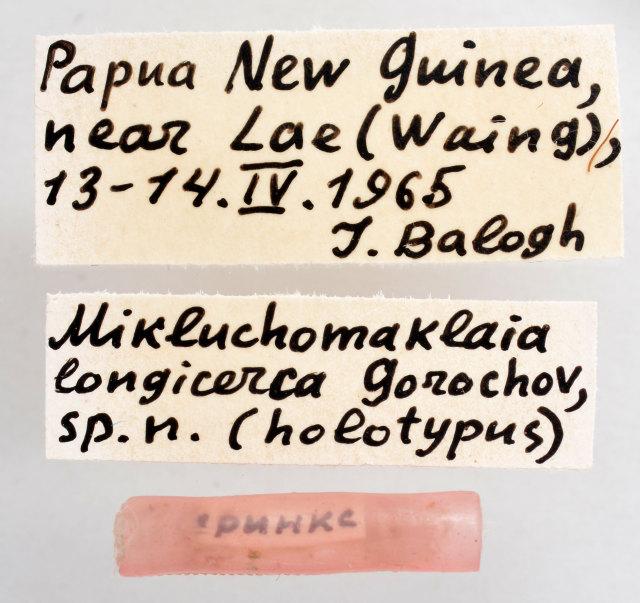 Papua New Guinea,
near Lae (Waing),
13-14.IV.1965
J. Balogh
Mikluchomaklaia
longicerca Gorochov,
sp. n. (holotypus)